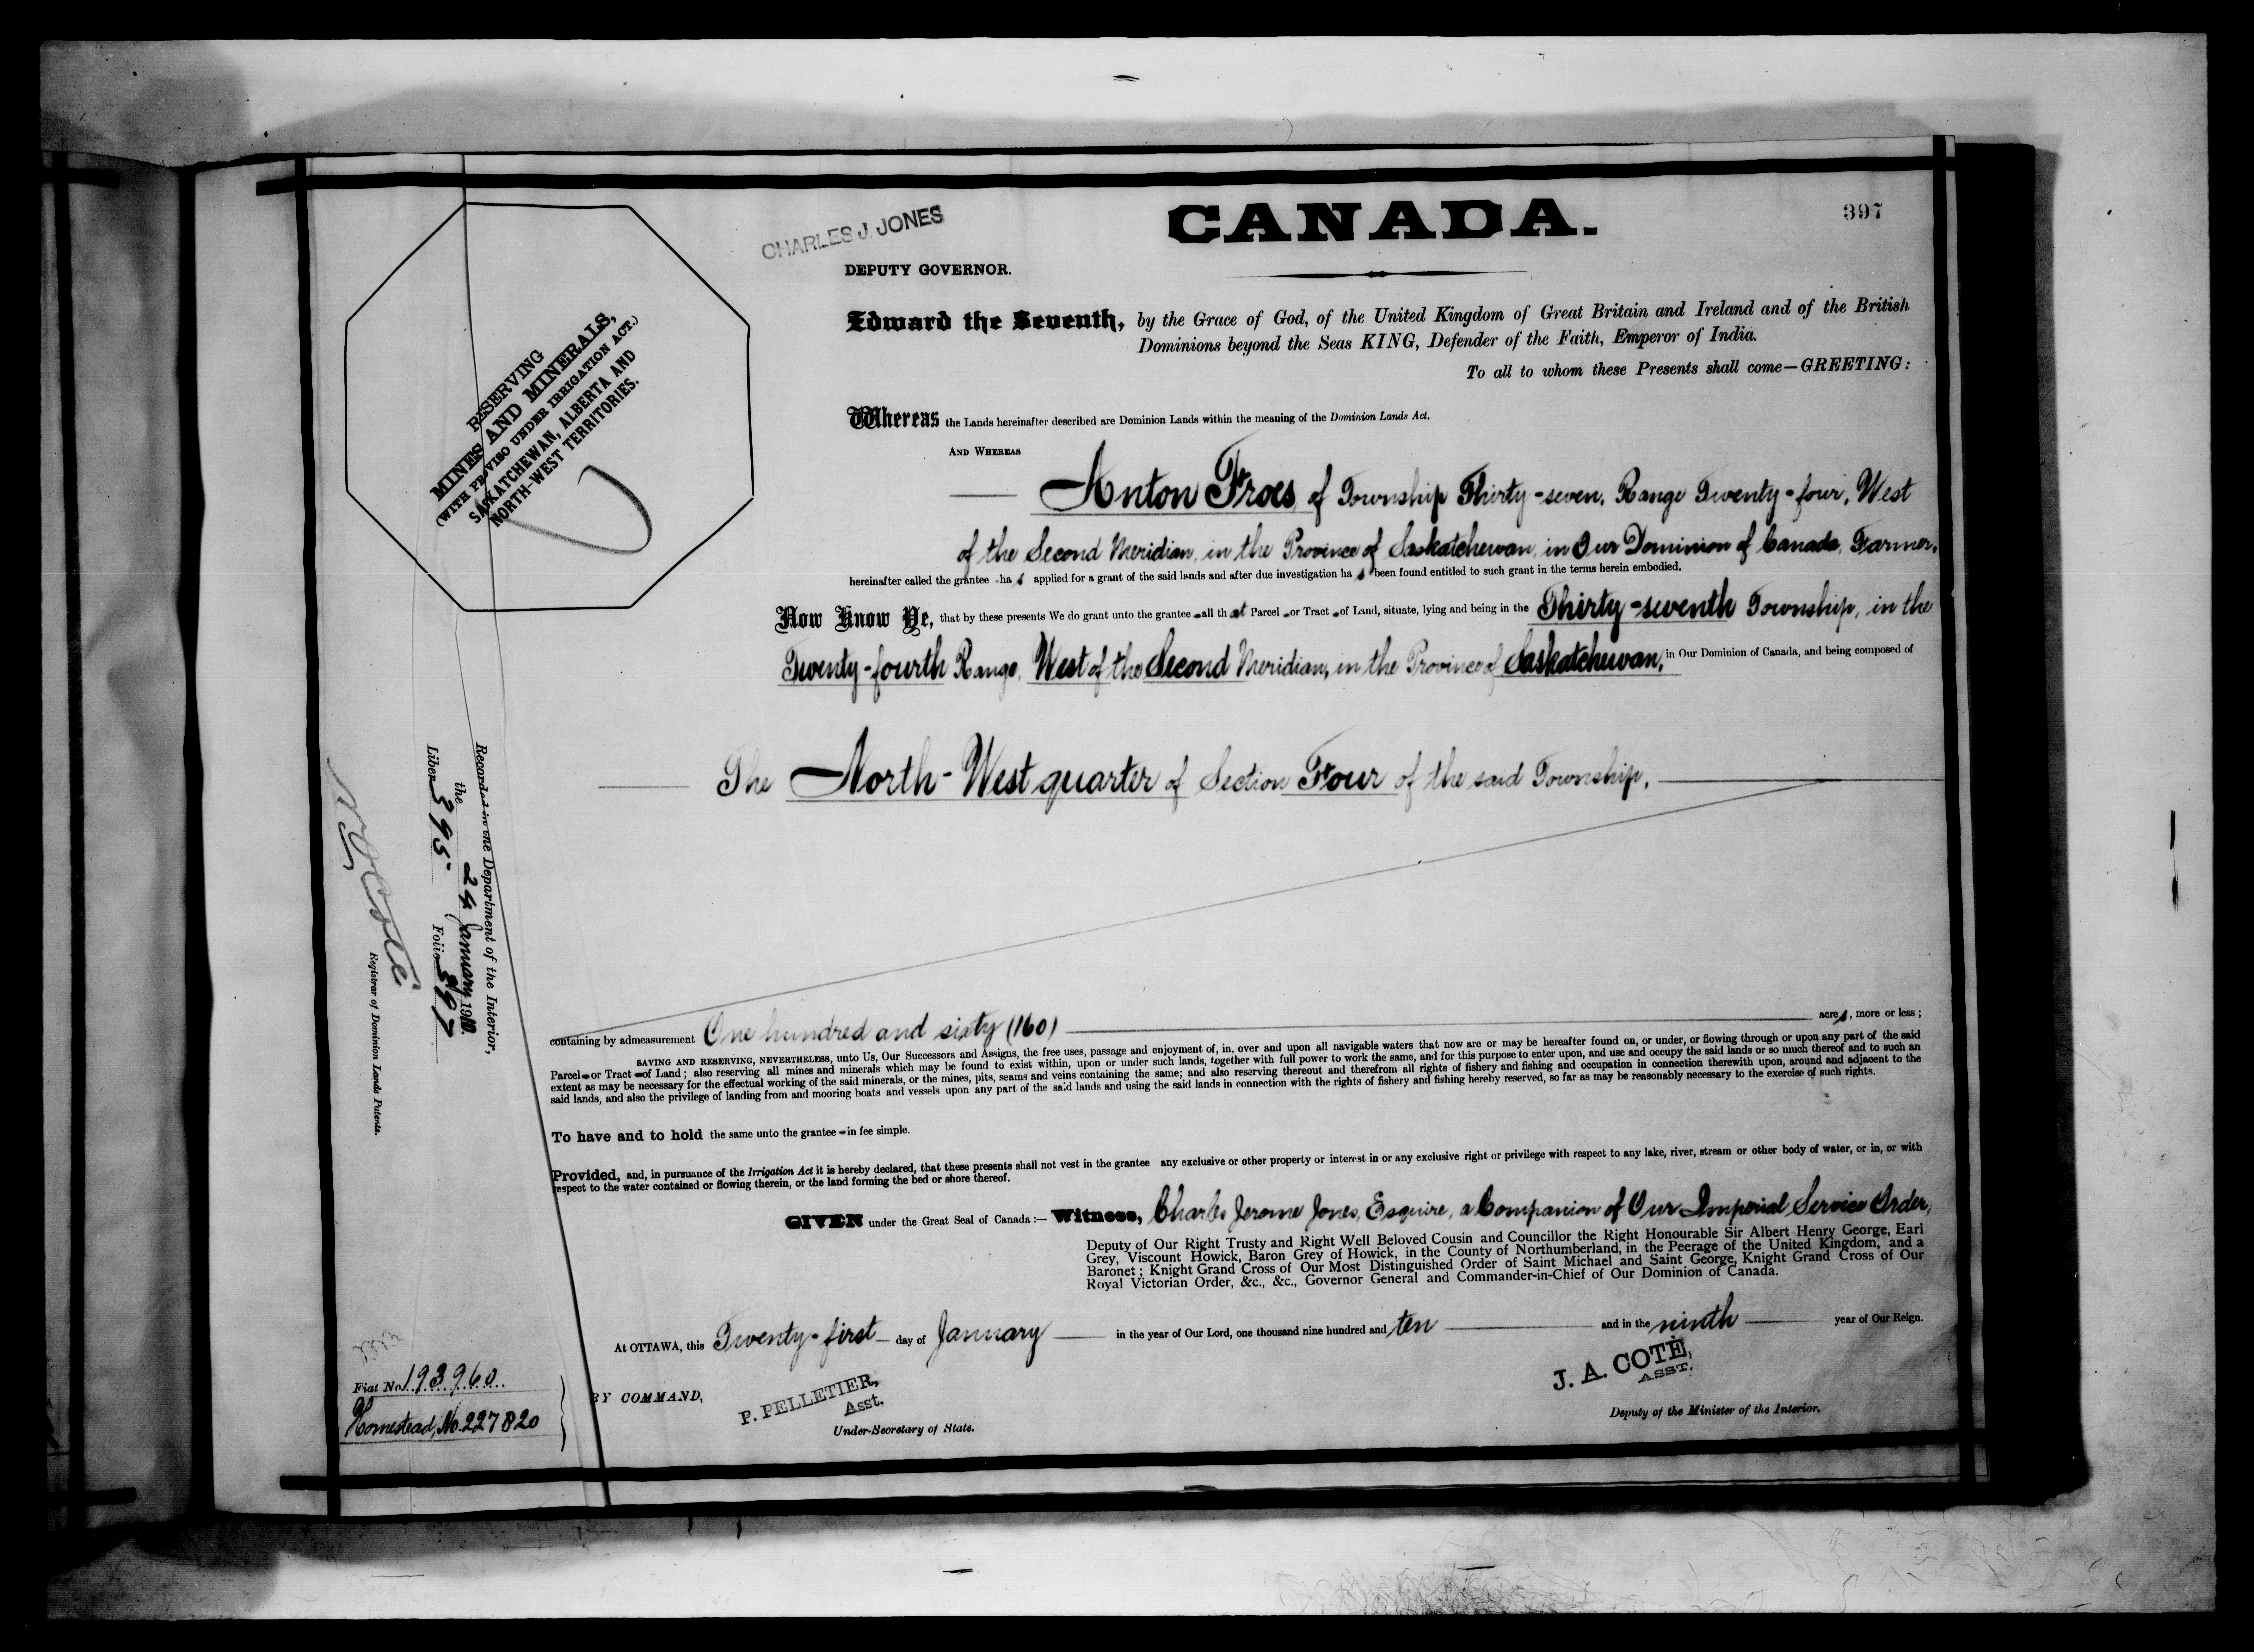 CANADA.
397
CHARLES J. JONES
DEPUTY GOVERNOR.
RESERVING
MINES AND MINERALS,
(WITH PROVISO UNDER IRRIGATION ACT.)
SASKATCHEWAN, ALBERTA AND
NORTH-WEST TERRITORIES.
Edward the Seventh, by the Grace of God, of the United Kingdom of Great Britain and Ireland and of the British
Dominions beyond the Seas KING, Defender of the Faith, Emperor of India.
To all to whom these Presents shall come—GREETING:
Whereas the Lands hereinafter described are Dominion Lands within the meaning of the Dominion Lands Act.
AND WHEREAS
Anton Froes of Township Thirty-seven, Range Twenty-four, West
of the Second Meridian, in the Province of Saskatchewan, in Our Dominion of Canada, Farmer,
hereinafter called the grantee has applied for a grant of the said lands and after due investigation has been found entitled to such grant in the terms herein embodied.
Now Know Ye, that by these presents We do grant unto the grantee all that Parcel or Tract of Land, situate, lying and being in the Thirty-seventh Township, in the
Twenty-fourth Range, West of the Second Meridian, in the Province of Saskatchewan, in Our Dominion of Canada, and being composed of
The North-West quarter of Section Four of the said Township.
Recorded in the Department of the Interior,
the 24 January 1910.
Liber 395 Folio 397
N O Coté
Registrar of Dominion Lands Patents.
containing by admeasurement One hundred and sixty (160) acres, more or less;
SAVING AND RESERVING, NEVERTHELESS, unto Us, Our Successors and Assigns, the free uses, passage and enjoyment of, in, over and upon all navigable waters that now are or may be hereafter found on, or under, or flowing through or upon any part of the said
Parcel or Tract of Land; also reserving all mines and minerals which may be found to exist within, upon or under such lands, together with full power to work the same, and for this purpose to enter upon, and use and occupy the said lands or so much thereof and to such an
extent as may be necessary for the effectual working of the said minerals, or the mines, pits, seams and veins containing the same; and also reserving thereout and therefrom all rights of fishery and fishing and occupation in connection therewith upon, around and adjacent to the
said lands, and also the privilege of landing from and mooring boats and vessels upon any part of the said lands and using the said lands in connection with the rights of fishery and fishing hereby reserved, so far as may be reasonably necessary to the exercise of such rights.
To have and to hold the same unto the grantee in fee simple.
Provided, and, in pursuance of the Irrigation Act it is hereby declared, that these presents shall not vest in the grantee any exclusive or other property or interest in or any exclusive right or privilege with respect to any lake, river, stream or other body of water, or in, or with
respect to the water contained or flowing therein, or the land forming the bed or shore thereof.
GIVEN under the Great Seal of Canada:— Witness, Charles Jerome Jones, Esquire, a Companion of Our Imperial Service Order,
Deputy of Our Right Trusty and Right Well Beloved Cousin and Councillor the Right Honourable Sir Albert Henry George, Earl
Grey, Viscount Howick, Baron Grey of Howick, in the County of Northumberland, in the Peerage of the United Kingdom, and a
Baronet; Knight Grand Cross of Our Most Distinguished Order of Saint Michael and Saint George, Knight Grand Cross of Our
Royal Victorian Order, &c., &c., Governor General and Commander-in-Chief of Our Dominion of Canada.
At OTTAWA, this Twenty-first day of January in the year of Our Lord, one thousand nine hundred and ten and in the ninth year of Our Reign.
Fiat No. 193960
Homestead, No. 227820
BY COMMAND,
P. PELLETIER,
Asst.
Under-Secretary of State.
J. A. COTÉ,
ASST.
Deputy of the Minister of the Interior.